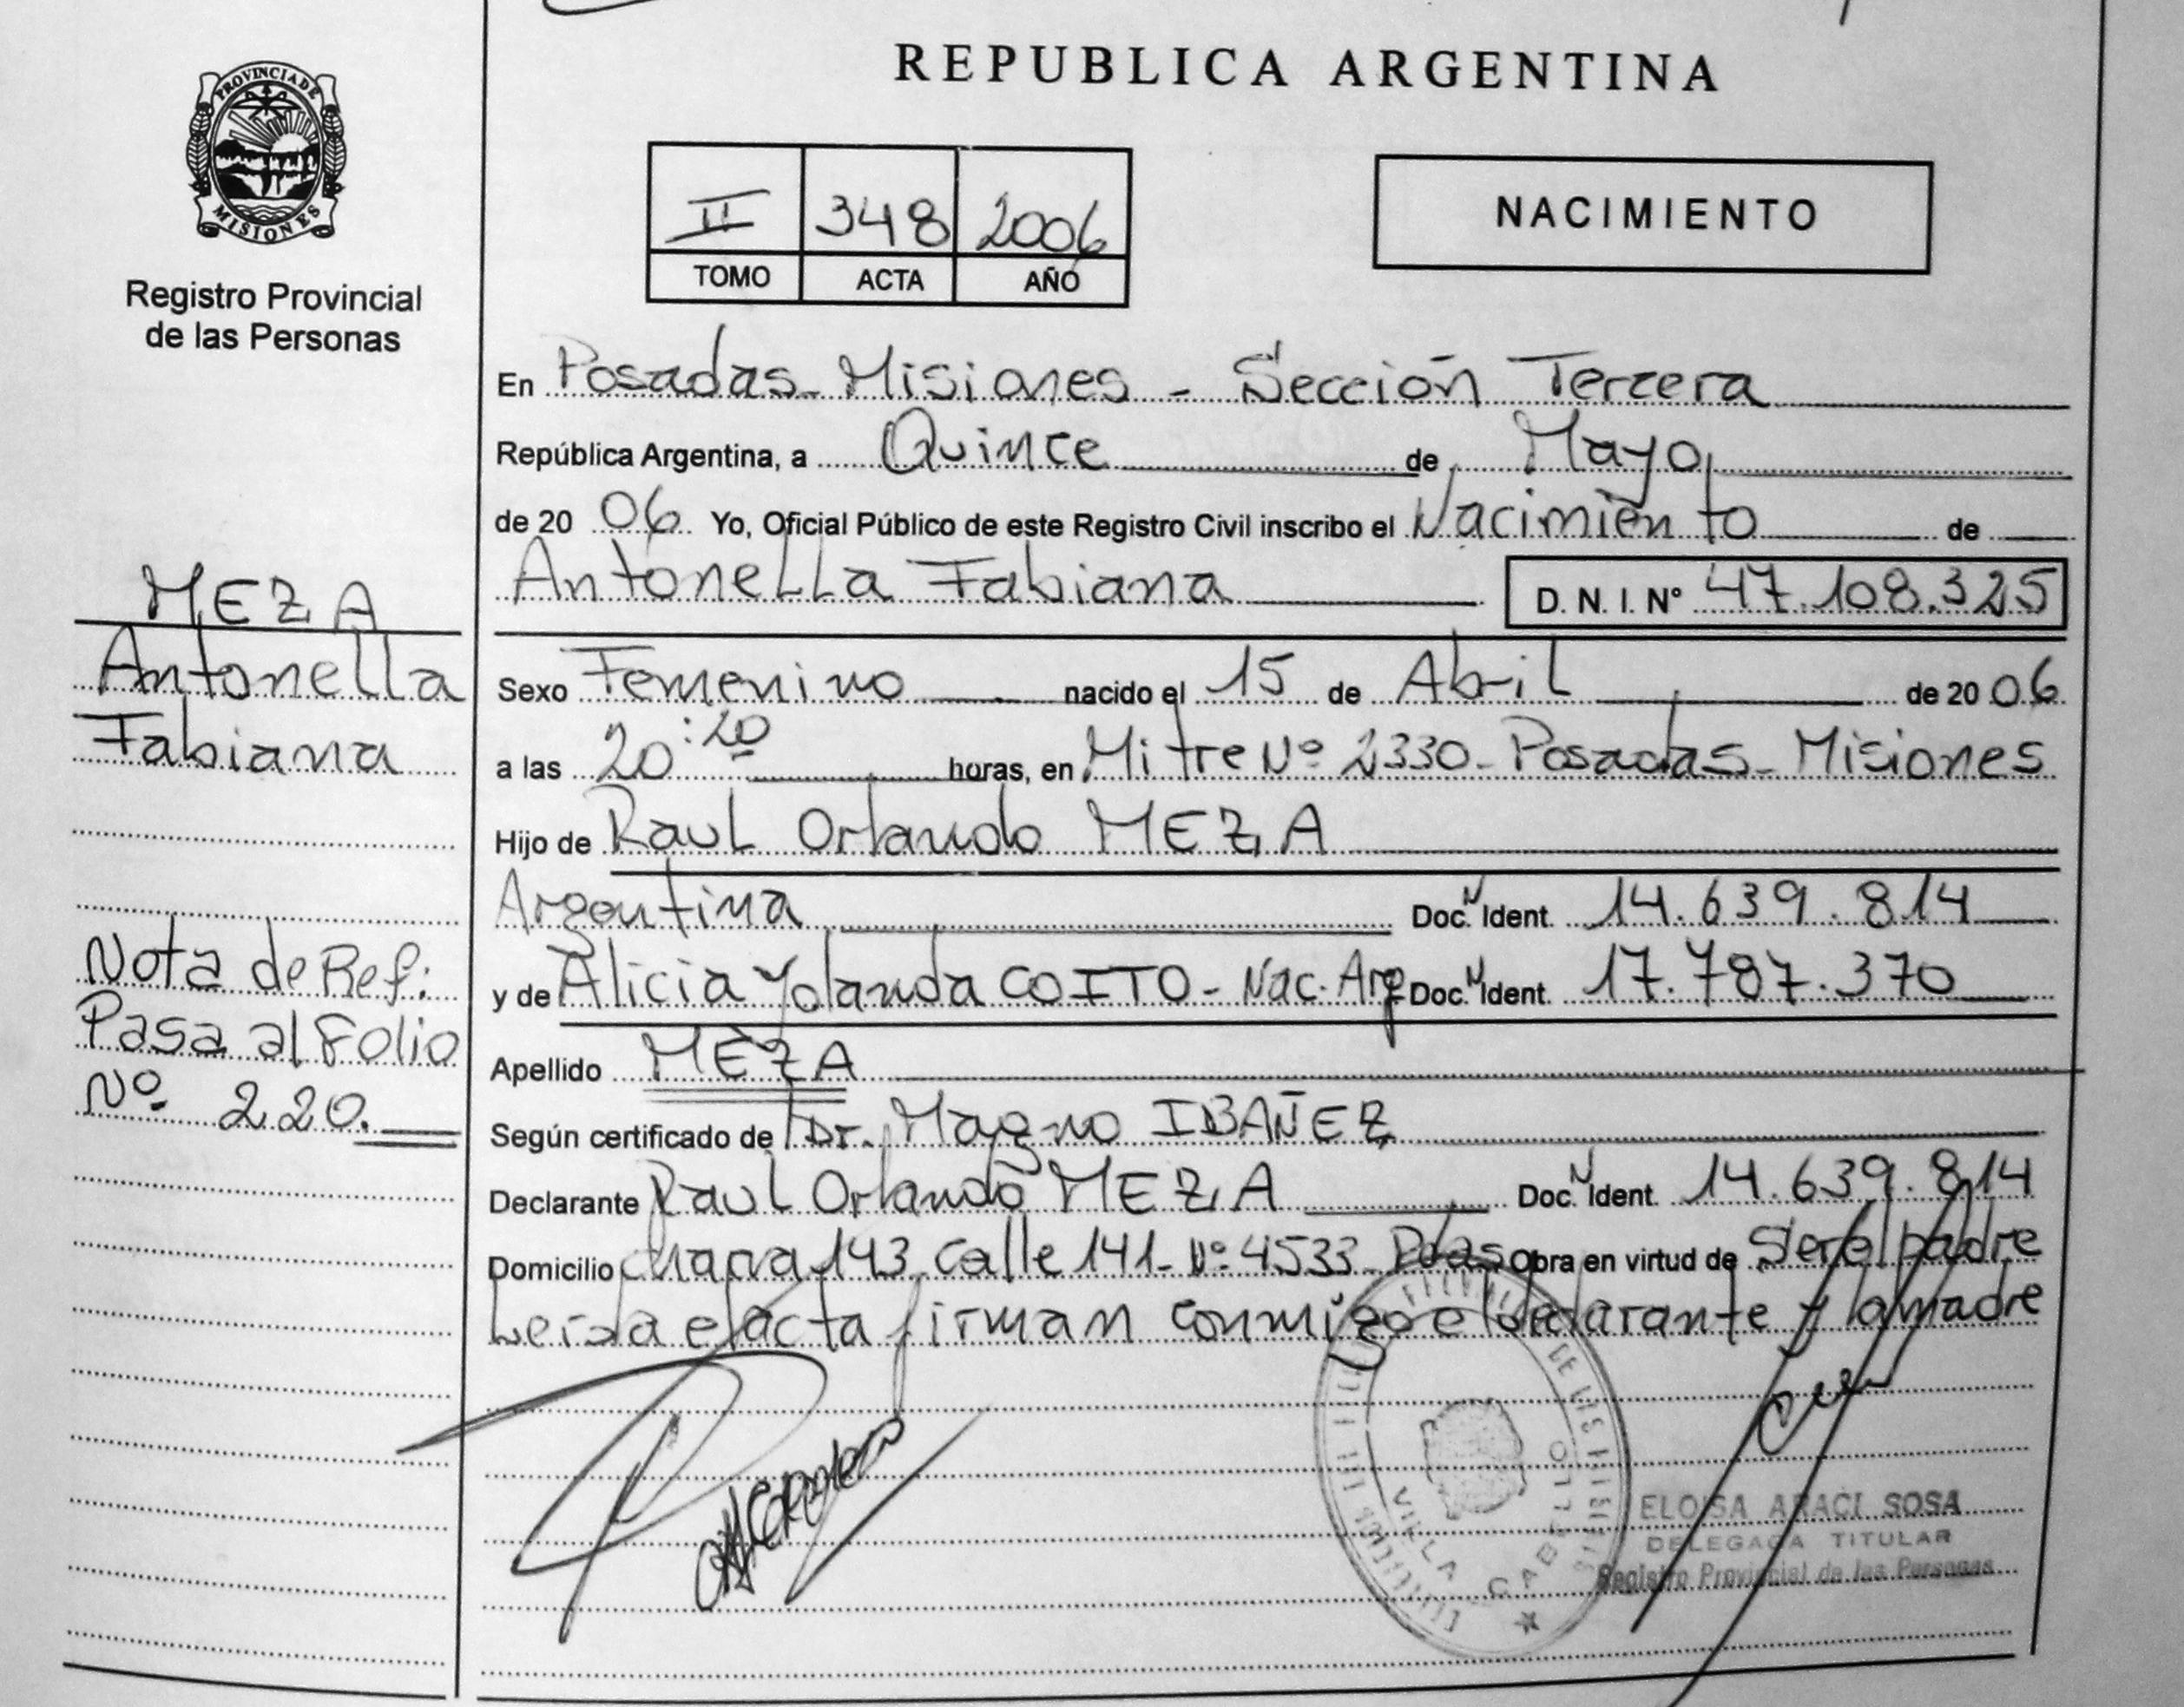 PROVINCIA DE
MISIONES
Registro Provincial
de las Personas
MEZA
Antonella
Fabiana
Nota de Ref:
Pasa al Folio
Nº 220.
REPUBLICA ARGENTINA
II 348 2006
TOMO ACTA AÑO
NACIMIENTO
En Posadas - Misiones - Sección Tercera
República Argentina, a Quince de Mayo
de 20 06 Yo, Oficial Público de este Registro Civil inscribo el Nacimiento de
Antonella Fabiana D. N. I. Nº 47.108.325
Sexo Femenino nacido el 15 de Abril de 20 06
a las 20:20 horas, en Mitre Nº 2330 - Posadas - Misiones
Hijo de Raul Orlando MEZA
Argentina Doc. N Ident. 14.639.814
y de Alicia Yolanda COITO - Nac. Arg Doc. N Ident. 17.787.370
Apellido MEZA
Según certificado de Dr. Magno IBAÑEZ
Declarante Raul Orlando MEZA Doc. N Ident. 14.639.814
Domicilio chacra 143 Calle 141 - Nº 4533 - Pdas Obra en virtud de Ser el padre
Leída el acta firman conmigo el declarante y la madre
VILLA CABELLO
ELOISA ARACI SOSA
DELEGADA TITULAR
Registro Provincial de las Personas